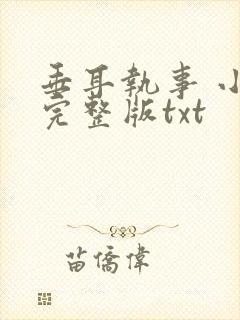 垂耳執事 小
完整版txt
苗僑偉